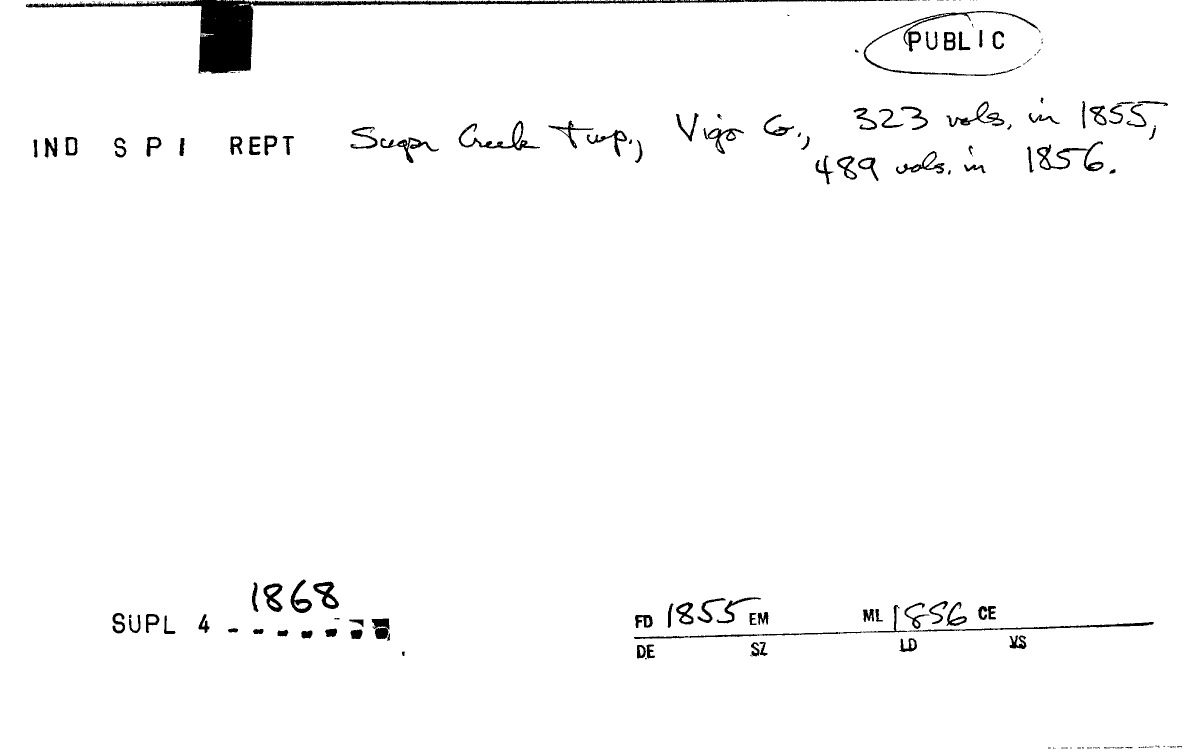 PUBLIC
IND S P I REPT Sugar Creek Twp., Vigo Co., 323 vols. in 1855,
489 vols. in 1856.
1868
SUPL 4 - - - - - - -
FD 1855 EM ML 1856 CE
DE SZ LD VS